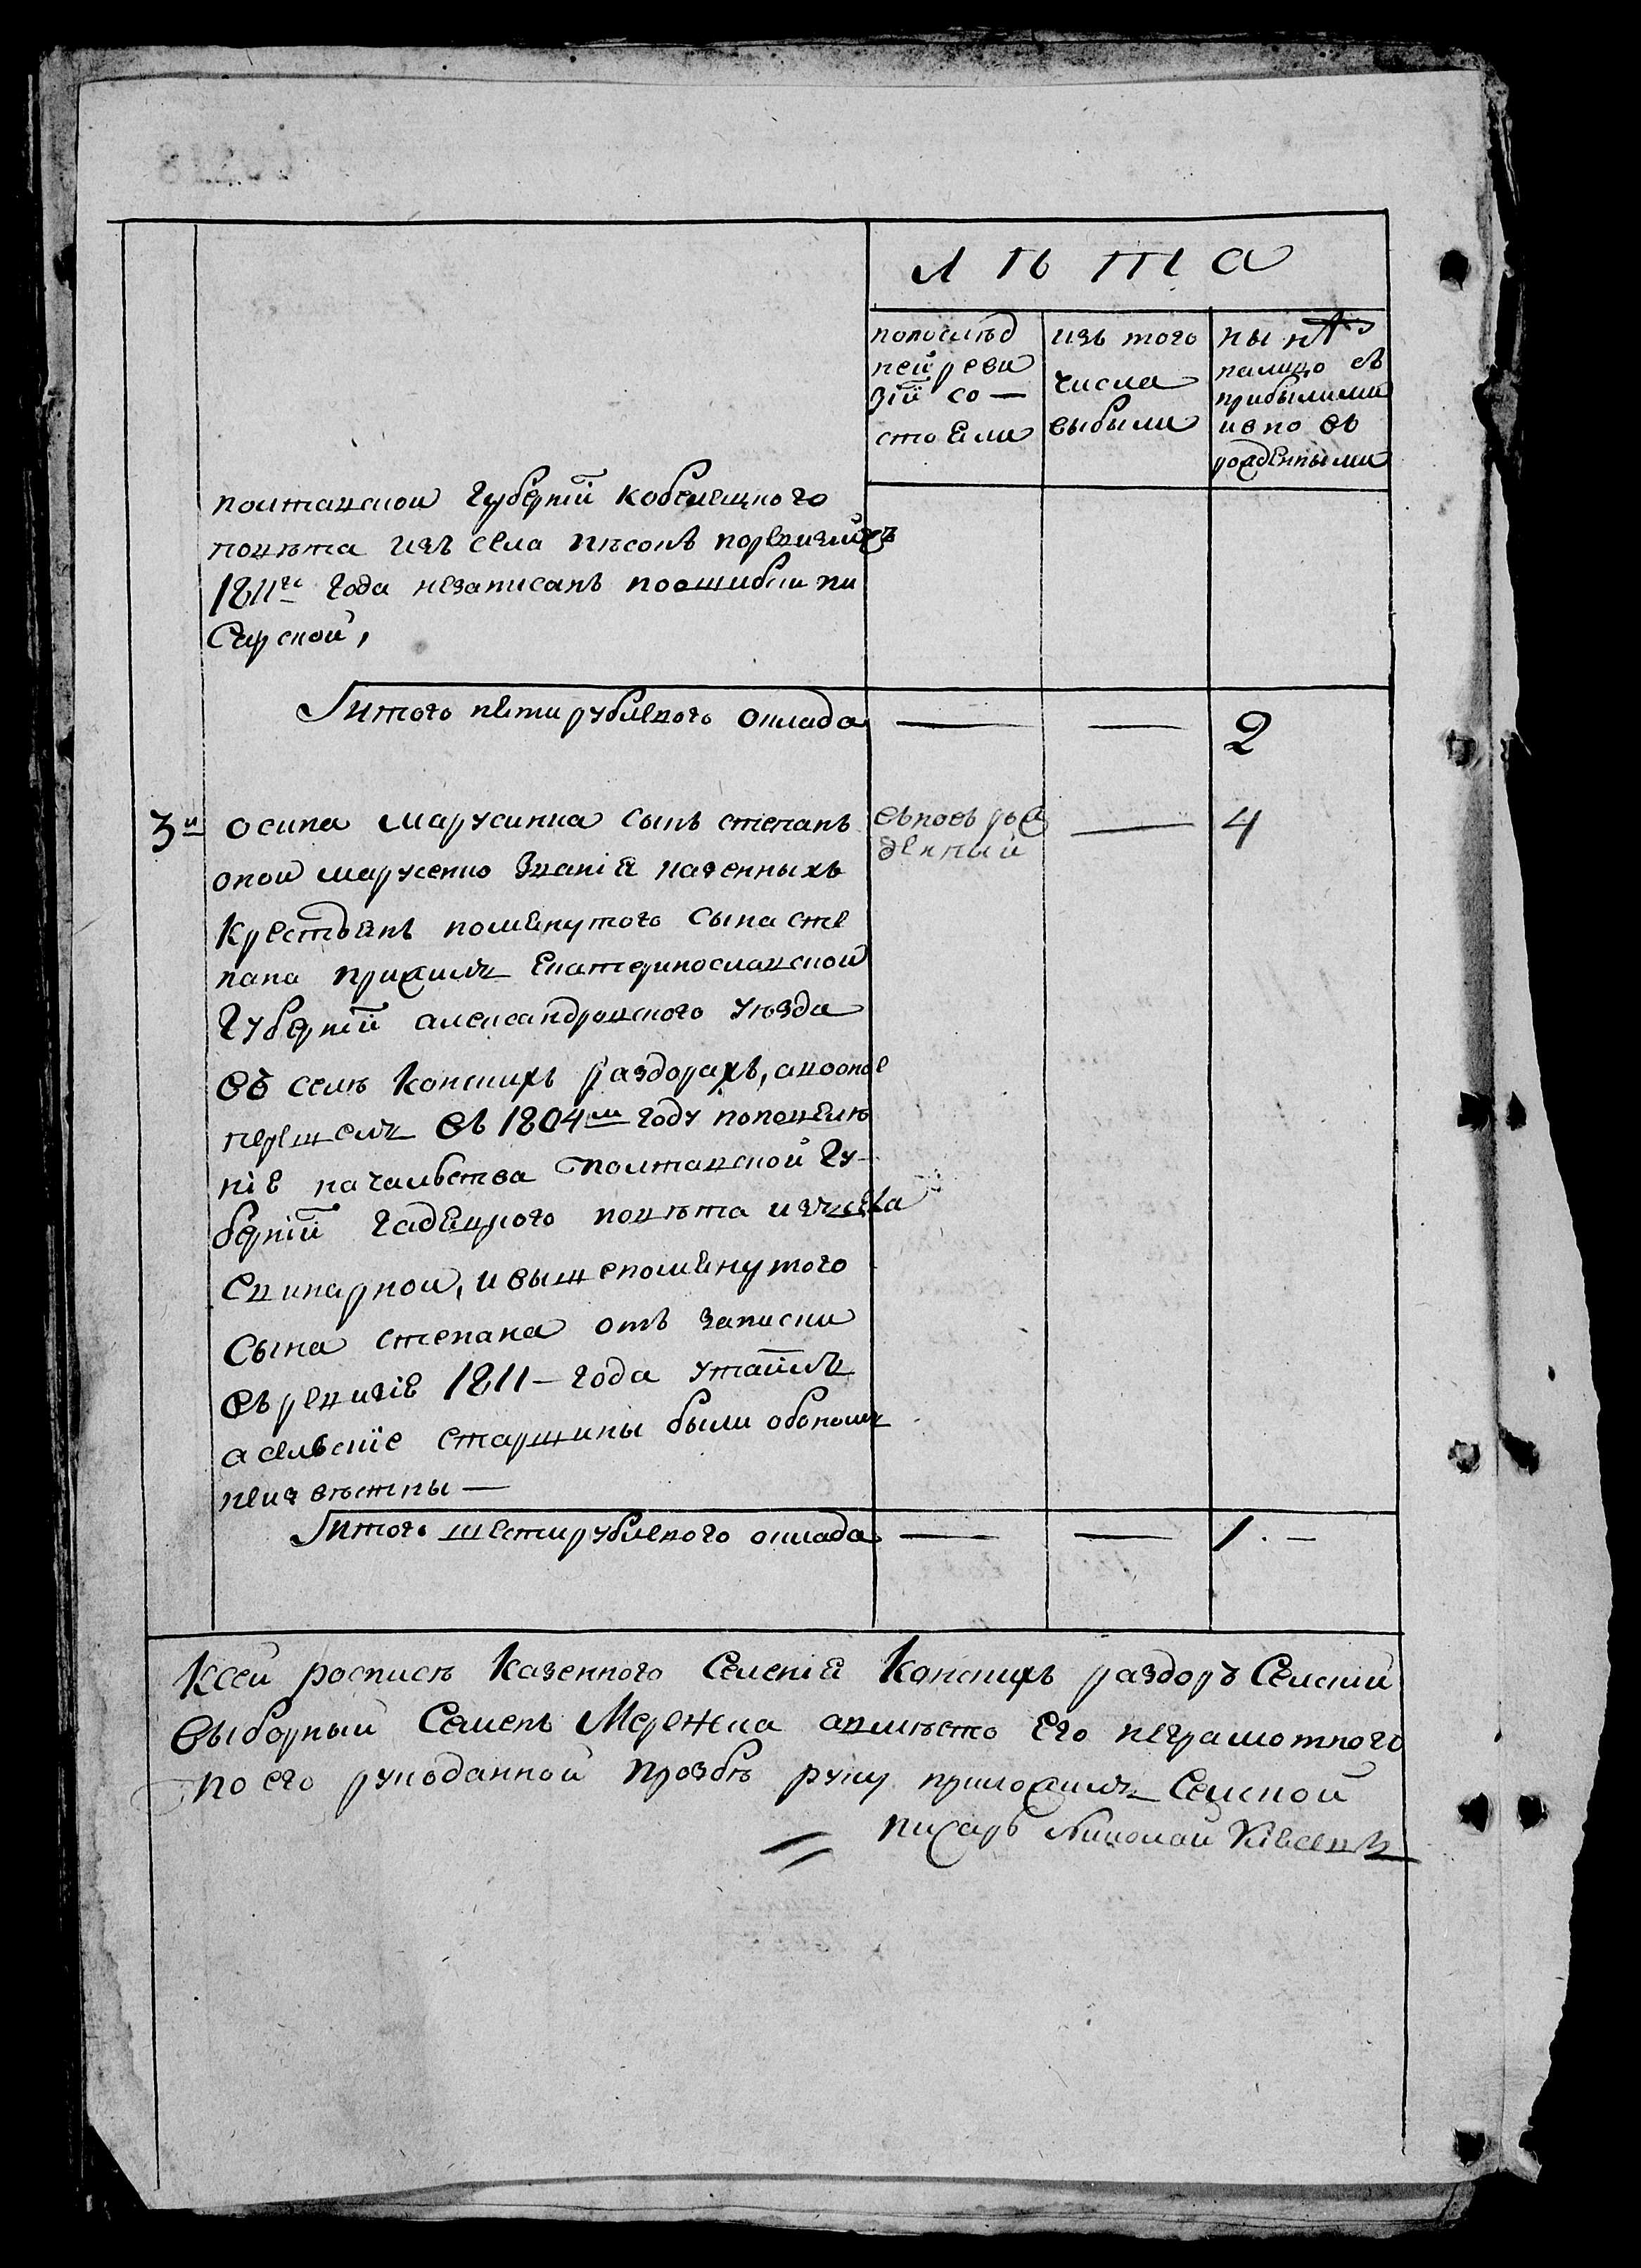 лѣта
попослѣд
ней реви
зіи со —
стояли
изъ того
числа
выбыли
нынѣ
налицо съ
прибылими
и вновъ
рожденными
полтавской губерніи кобеляцкого
повѣта изъ села пѣсокъ поревизіи
1811го года незаписанъ поошибки пи
сарской,
Итого пятирублевого оклада — — 2
3й осипа марусинка сынъ степанъ
вновь рож
денный
— 4
оной марусенко званія казенныхъ
крестьянъ помянутого сына сте
пана прижилъ Екатеринославской
губерніи александровского уѣзда
въ селѣ Конскихъ раздорахъ, акооное
перешелъ въ 1804м году поповелѣ
нію начальства полтавской гу-
берніи гадяцкого повѣта изъ села
, и вышепомянутого
сына степана отъ записки
въ ревизію 1811 – года утаилъ
а сельскіе старшины были обономъ
неизвѣстны —
Итого шестирублевого оклада — — 1. –
Ксей росписѣ Казенного Селенія Конскихъ раздоръ Селскій
выборный Семенъ Мережка авмѣсто его неграмотного
по его рукоданной прозбѣ руку приложилъ Селской
писарь Николай